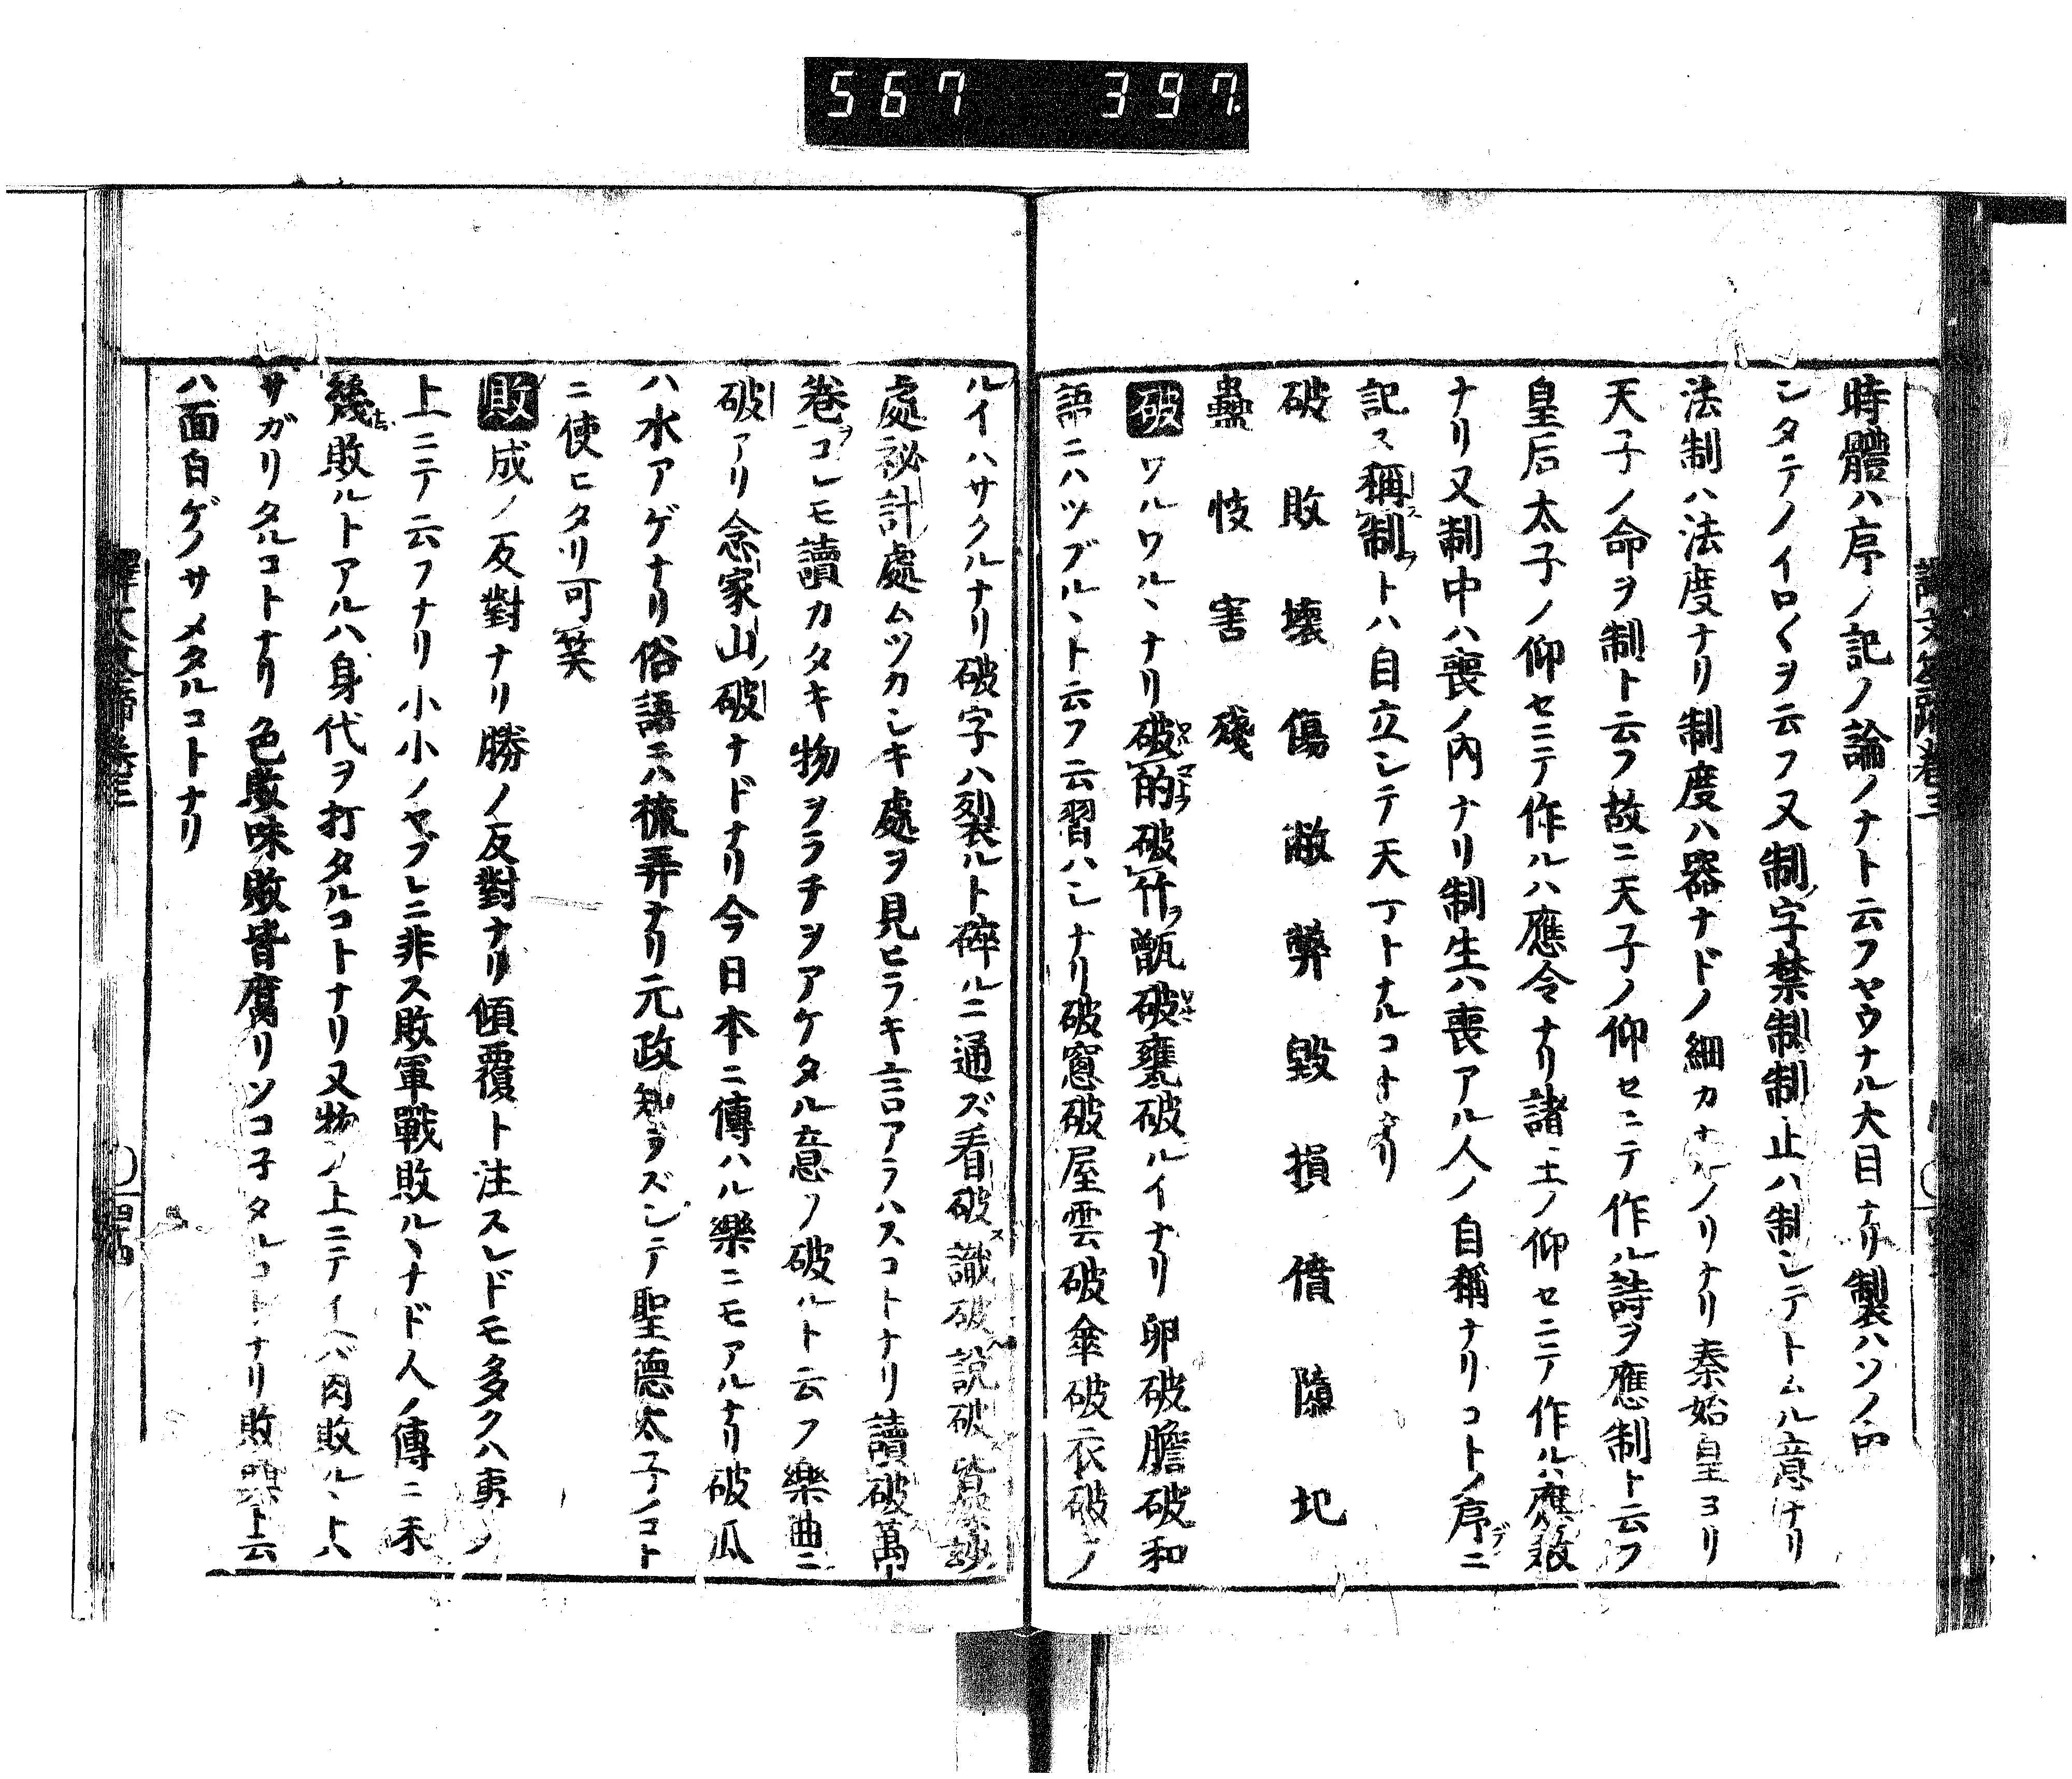 567 397
時體ハ序ノ記ノ論ノナト云フヤウナル大目ナリ製ハソノ
シタテノイロ〱ヲ云フ又制字禁制制止ハ制シテトムル意ナリ
法制ハ法度ナリ制度ハ器ナドノ細カナルノリナリ秦始皇ヨリ
天子ノ命ヲ制ト云フ故ニ天子ノ仰セニテ作ル詩ヲ應制ト云フ
皇后太子ノ仰セニテ作ルハ應令ナリ諸王ノ仰セニテ作ルハ應敎
ナリ又制中ハ喪ノ內ナリ制生ハ喪アル人ノ自稱ナリコトノ序ニ
記ス稱制トハ自立シテ天下トナルコトナリ
破敗壞傷敝弊毀損僨隳圮
蠱忮害殘
破ワルワルヽナリ破的破竹甑破甕破ルイナリ卵破膽破和
語ニハツブルヽト云フ云習ハシナリ破窓破屋雲破傘破衣破ノ
ルイハサクルナリ破字ハ裂ルト碎ルニ通ズ看破識破說破
處祕計處ムツカシキ處ヲ見ヒラキ言アラハスコトナリ讀破萬
卷コレモ讀カタキ物ヲラチヲアケタル意ノ破ルト云フ樂曲ニ
破アリ念家山破ナドナリ今日本ニ傳ハル樂ニモアルナリ破瓜
ハ水アゲナリ俗語ニハ梳弄ナリ元政知ラズシテ聖德太子ノコト
ニ使ヒタリ可笑
敗成ノ反對ナリ勝ノ反對ナリ傾覆ト注スレドモ多クハ事ノ
上ニテ云フナリ小小ノヤブレニ非ス敗軍戰敗ルヽナド人ノ傳ニ禾
幾敗ルトアルハ身代ヲ打タルコトナリ又物ノ上ニテイヘバ肉敗ルヽトハ
サガリタルコトナリ色敗味敗皆腐リソコネタルコトナリ敗興ト云
ハ面白ゲノサメタルコトナリ